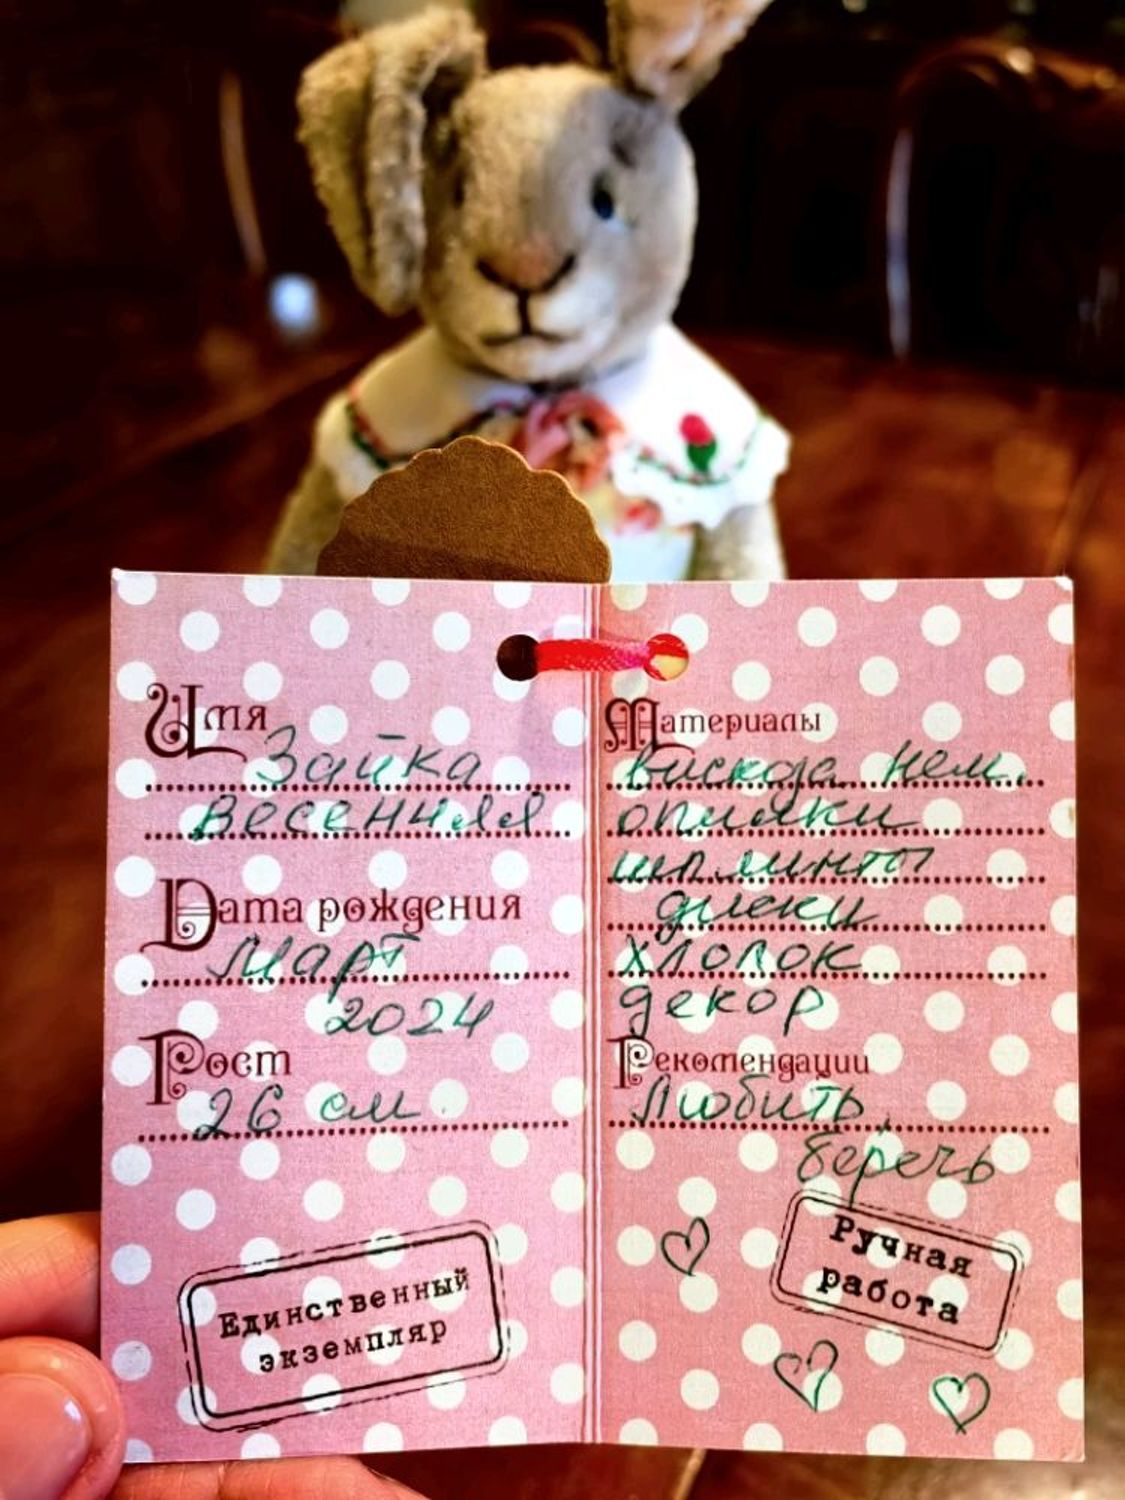 Имя
Зайка
весенняя
Дата рождения
Март
2024
Рост
26 см.
Единственный
экземпляр
Материалы
вискоза нем.
опилки
шплинты
диски
хлопок
декор
Рекомендации
Любить,
беречь
Ручная
работа